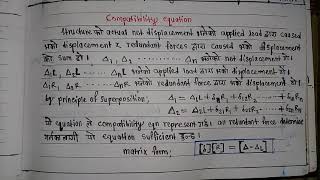 Compatibility equation
Structure को actual net displacement भनेको applied load द्वारा caused
भएको displacement र redundant forces द्वारा caused भएको displacement
को sum हो।
Δ1, Δ2 ......... Δn भनेको net displacement हो।
Δ1L, Δ2L ...... ΔnL भनेको applied load द्वारा भएको displacement हो।
Δ1R, Δ2R, ........ ΔnR भनेको redundant forces द्वारा भएको displacement हो।
by principle of superposition; Δ1 = Δ1L + δ11R1 + δ12R2 ------
Δ2 = Δ2L + δ21R1 + δ22R2 -----
यो equation ले compatibility eqn represent गर्छ। all redundant force determine
गर्नको लागी यो equation sufficient हुन्छ।
matrix form; [δ][R] = [Δ - ΔL]